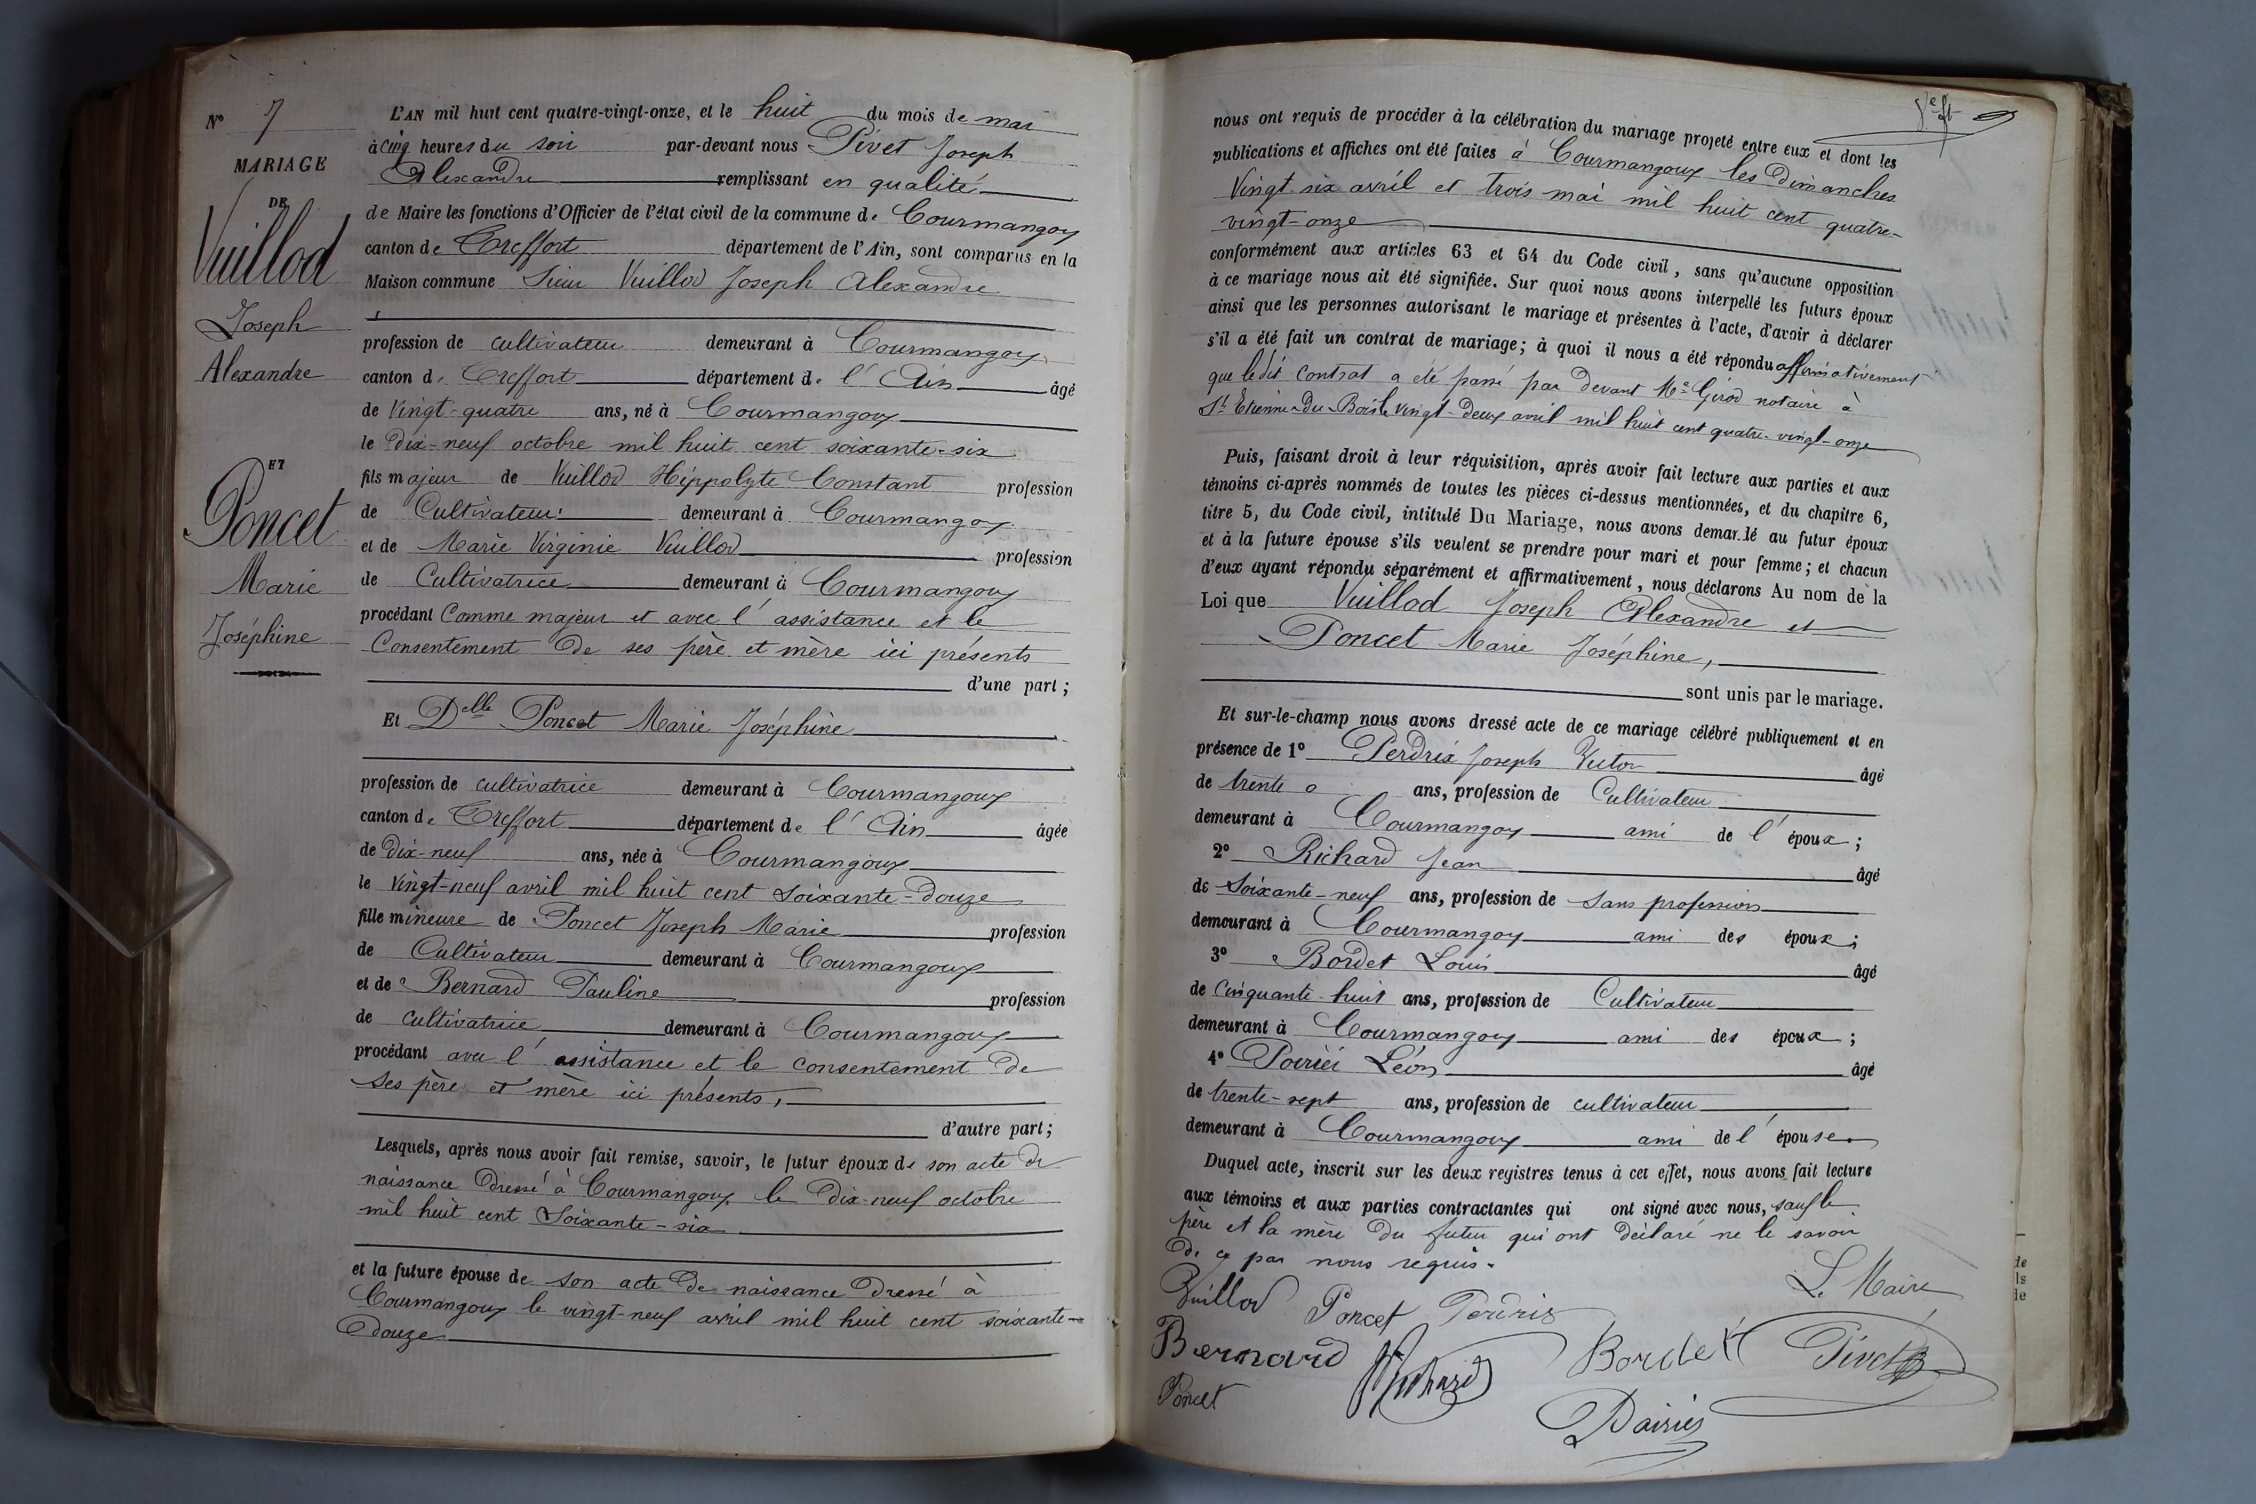 N° 7
MARIAGE
DE
Vuillod
Joseph
Alexandre
ET
Poncet
Marie
Joséphine
L'AN mil huit cent quatre-vingt-onze, et le huit du mois de mai
à cinq heures du soir par-devant nous Pivet Joseph
Alexandre remplissant en qualité
de Maire les fonctions d'Officier de l'état civil de la commune de Courmangoux
canton de Treffort département de l'Ain, sont comparus en la
Maison commune Sieur Vuillod Joseph Alexandre
profession de cultivateur demeurant à Courmangoux
canton de Treffort département de l'Ain âgé
de vingt-quatre ans, né à Courmangoux
le dix-neuf octobre mil huit cent soixante-six
fils majeur de Vuillod Hippolyte Constant profession
de Cultivateur demeurant à Courmangoux
et de Marie Virginie Vuillod profession
de Cultivatrice demeurant à Courmangoux
procédant Comme majeur et avec l'assistance et le
Consentement de ses père et mère ici présents
d'une part ;
Et Delle Poncet Marie Joséphine
profession de cultivatrice demeurant à Courmangoux
canton de Treffort département de l'Ain âgée
de dix-neuf ans, née à Courmangoux
le vingt-neuf avril mil huit cent soixante-douze
fille mineure de Poncet Joseph Marie profession
de Cultivateur demeurant à Courmangoux
et de Bernard Pauline profession
de cultivatrice demeurant à Courmangoux
procédant avec l'assistance et le consentement de
ses père et mère ici présents,
d'autre part ;
Lesquels, après nous avoir fait remise, savoir, le futur époux de son acte de
naissance dressé à Courmangoux le dix-neuf octobre
mil huit cent soixante-six
et la future épouse de son acte de naissance dressé à
Courmangoux le vingt-neuf avril mil huit cent soixante-
douze
nous ont requis de procéder à la célébration du mariage projeté entre eux et dont les
publications et affiches ont été faites à Courmangoux les Dimanches
vingt-six avril et trois mai mil huit cent quatre-
vingt-onze
conformément aux articles 63 et 64 du Code civil, sans qu'aucune opposition
à ce mariage nous ait été signifiée. Sur quoi nous avons interpellé les futurs époux
ainsi que les personnes autorisant le mariage et présentes à l'acte, d'avoir à déclarer
s'il a été fait un contrat de mariage ; à quoi il nous a été répondu affirmativement
que ledit contrat a été passé par devant Me Girod notaire à
St Etienne-du-Bois le vingt-deux avril mil huit cent quatre-vingt-onze
Puis, faisant droit à leur réquisition, après avoir fait lecture aux parties et aux
témoins ci-après nommés de toutes les pièces ci-dessus mentionnées, et du chapitre 6,
titre 5, du Code civil, intitulé Du Mariage, nous avons demandé au futur époux
et à la future épouse s'ils veulent se prendre pour mari et pour femme ; et chacun
d'eux ayant répondu séparément et affirmativement, nous déclarons Au nom de la
Loi que Vuillod Joseph Alexandre et
Poncet Marie Joséphine,
sont unis par le mariage.
Et sur-le-champ nous avons dressé acte de ce mariage célébré publiquement et en
présence de 1° Perdrix Joseph Victor âgé
de trente ans, profession de Cultivateur
demeurant à Courmangoux ami de l'époux ;
2° Richard Jean âgé
de soixante-neuf ans, profession de sans profession
demeurant à Courmangoux ami des époux ;
3° Bordet Louis âgé
de cinquante-huit ans, profession de Cultivateur
demeurant à Courmangoux ami des époux ;
4° Poirier Léon âgé
de trente-sept ans, profession de cultivateur
demeurant à Courmangoux ami de l'épouse
Duquel acte, inscrit sur les deux registres tenus à cet effet, nous avons fait lecture
aux témoins et aux parties contractantes qui ont signé avec nous, sauf le
père et la mère du futur qui ont déclaré ne le savoir
de ce par nous requis.
Le Maire
Vuillod Poncet Perdrix
Bernard Richard Bordet Pivet
Poncet